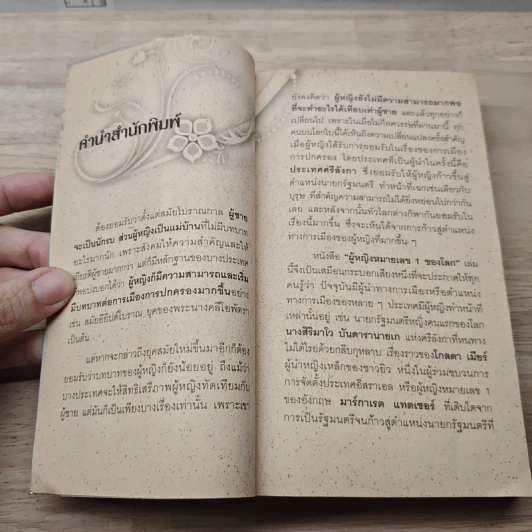 คำนำสำนักพิมพ์
ต้องยอมรับว่าตั้งแต่สมัยโบราณกาล ผู้ชาย
จะเป็นนักรบ ส่วนผู้หญิงเป็นแม่บ้านที่ไม่มีบทบาท
อะไรมากนัก เพราะสังคมให้ความสำคัญและให้
เกียรติผู้ชายมากกว่า แต่ก็มีหลักฐานของบางประเทศ
ที่พอบ่งบอกได้ว่า ผู้หญิงก็มีความสามารถและเริ่ม
มีบทบาทต่อการเมืองการปกครองมากขึ้นอย่าง
เช่น สมัยอียิปต์โบราณ ยุคของพระนางคลีโอพัตรา
เป็นต้น
แต่หากจะกล่าวถึงยุคสมัยใหม่ขึ้นมาอีกก็ต้อง
ยอมรับว่าบทบาทของผู้หญิงก็ยังน้อยอยู่ ถึงแม้ว่า
บางประเทศจะให้สิทธิเสรีภาพผู้หญิงทัดเทียมกับ
ผู้ชาย แต่มันก็เป็นเพียงบางเรื่องเท่านั้น เพราะเขา
ยังคงคิดว่า ผู้หญิงยังไม่มีความสามารถมากพอ
ที่จะทำอะไรได้เทียบเท่าผู้ชาย และแล้วทุกอย่างก็
เปลี่ยนไป เพราะในเมื่อไม่กี่ทศวรรษที่ผ่านมานี้ ทุก
คนบนโลกใบนี้ได้เห็นถึงความเปลี่ยนแปลงครั้งสำคัญ
เมื่อผู้หญิงได้รับการยอมรับในเรื่องของการเมือง
การปกครอง โดยประเทศที่เป็นผู้นำในครั้งนี้คือ
ประเทศศรีลังกา ซึ่งยอมรับให้ผู้หญิงก้าวขึ้นสู่
ตำแหน่งนายกรัฐมนตรี ทำหน้าที่เฉกเช่นเดียวกับ
บุรุษ ที่สำคัญความสามารถไม่ได้ยิ่งหย่อนไปกว่ากัน
เลย และหลังจากนั้นทั่วโลกต่างก็พากันยอมรับใน
เรื่องนี้มากขึ้น ซึ่งจะเห็นได้จากการก้าวสู่ตำแหน่ง
ทางการเมืองของผู้หญิงที่มากขึ้น ๆ
หนังสือ "ผู้หญิงหมายเลข 1 ของโลก" เล่ม
นี้จึงเป็นเสมือนกระบอกเสียงหนึ่งที่จะประกาศให้ทุก
คนรู้ว่า ปัจจุบันมีผู้นำทางการเมืองหรือตำแหน่ง
ทางการเมืองของหลาย ๆ ประเทศมีผู้หญิงทำหน้าที่
เหล่านั้นอยู่ เช่น นายกรัฐมนตรีหญิงคนแรกของโลก
นางสิริมาโว บันดารานายเก แห่งศรีลังกาที่หนทาง
ไม่ได้โรยด้วยกลีบกุหลาบ เรื่องราวของโกลดา เมียร์
ผู้นำหญิงเหล็กของชาวยิว หนึ่งในผู้ร่วมขบวนการ
การจัดตั้งประเทศอิสราเอล หรือผู้หญิงหมายเลข 1
ของอังกฤษ มาร์กาเรต แทตเชอร์ ที่เติบโตจาก
การเป็นรัฐมนตรีจนก้าวสู่ตำแหน่งนายกรัฐมนตรีที่